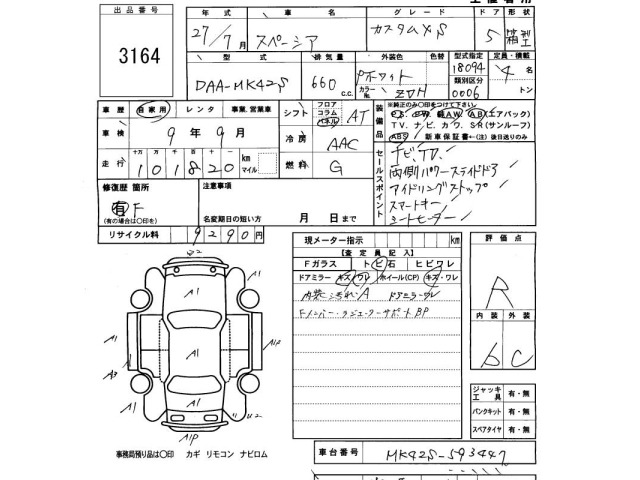 出品番号
3164
年式 車名 グレード ドア 形状
27/7月 スペーシア カスタムXS 5 箱型
型式 排気量 外装色 色替 型式指定 定員・積載
DAA-MK42S 660 c.c. Pホワイト 18094 4名
カラーNo. ZVH 類別区分 0006 トン
車歴 自家用 レンタ 事業,営業車
車検 9年9月
走行 十万 万 千 百 十 km マイル
101820
シフト フロア コラム パネル AT
冷房 AAC
燃料 G
装備品
※純正のみ〇印をつけて下さい。
P.S. P.W. 純AW. AB(エアバック)
T.V. ナビ. カワ. S・R(サンルーフ)
ABS 新車保証書←(注)後日送りのみ
セールスポイント
ナビ,TV.
両側パワースライドドア
アイドリングストップ
スマートキー
シートヒーター
修復歴 箇所 注意事項
有 F
(有の場合は〇印を) 名変期日の短い方 月 日まで
リサイクル料 9290円
現メーター指示 km
【査定員記入】
Fガラス トビ石 ヒビワレ
ドアミラー キズ・ワレ ホイール(CP) キズ・ワレ
内装ヨゴレA ドアミラーワレ
Fメンバー・ラジエーターサポートBP
評価点
R
内装 外装
b C
ジャッキ工具 有・無
パンクキット 有・無
スペアタイヤ 有・無
A1
A1
A1
A1
A3
A1
A1
A1P
A1
U2
A1P
事務局預り品は〇印 カギ リモコン ナビロム
車台番号 MK42S-593447